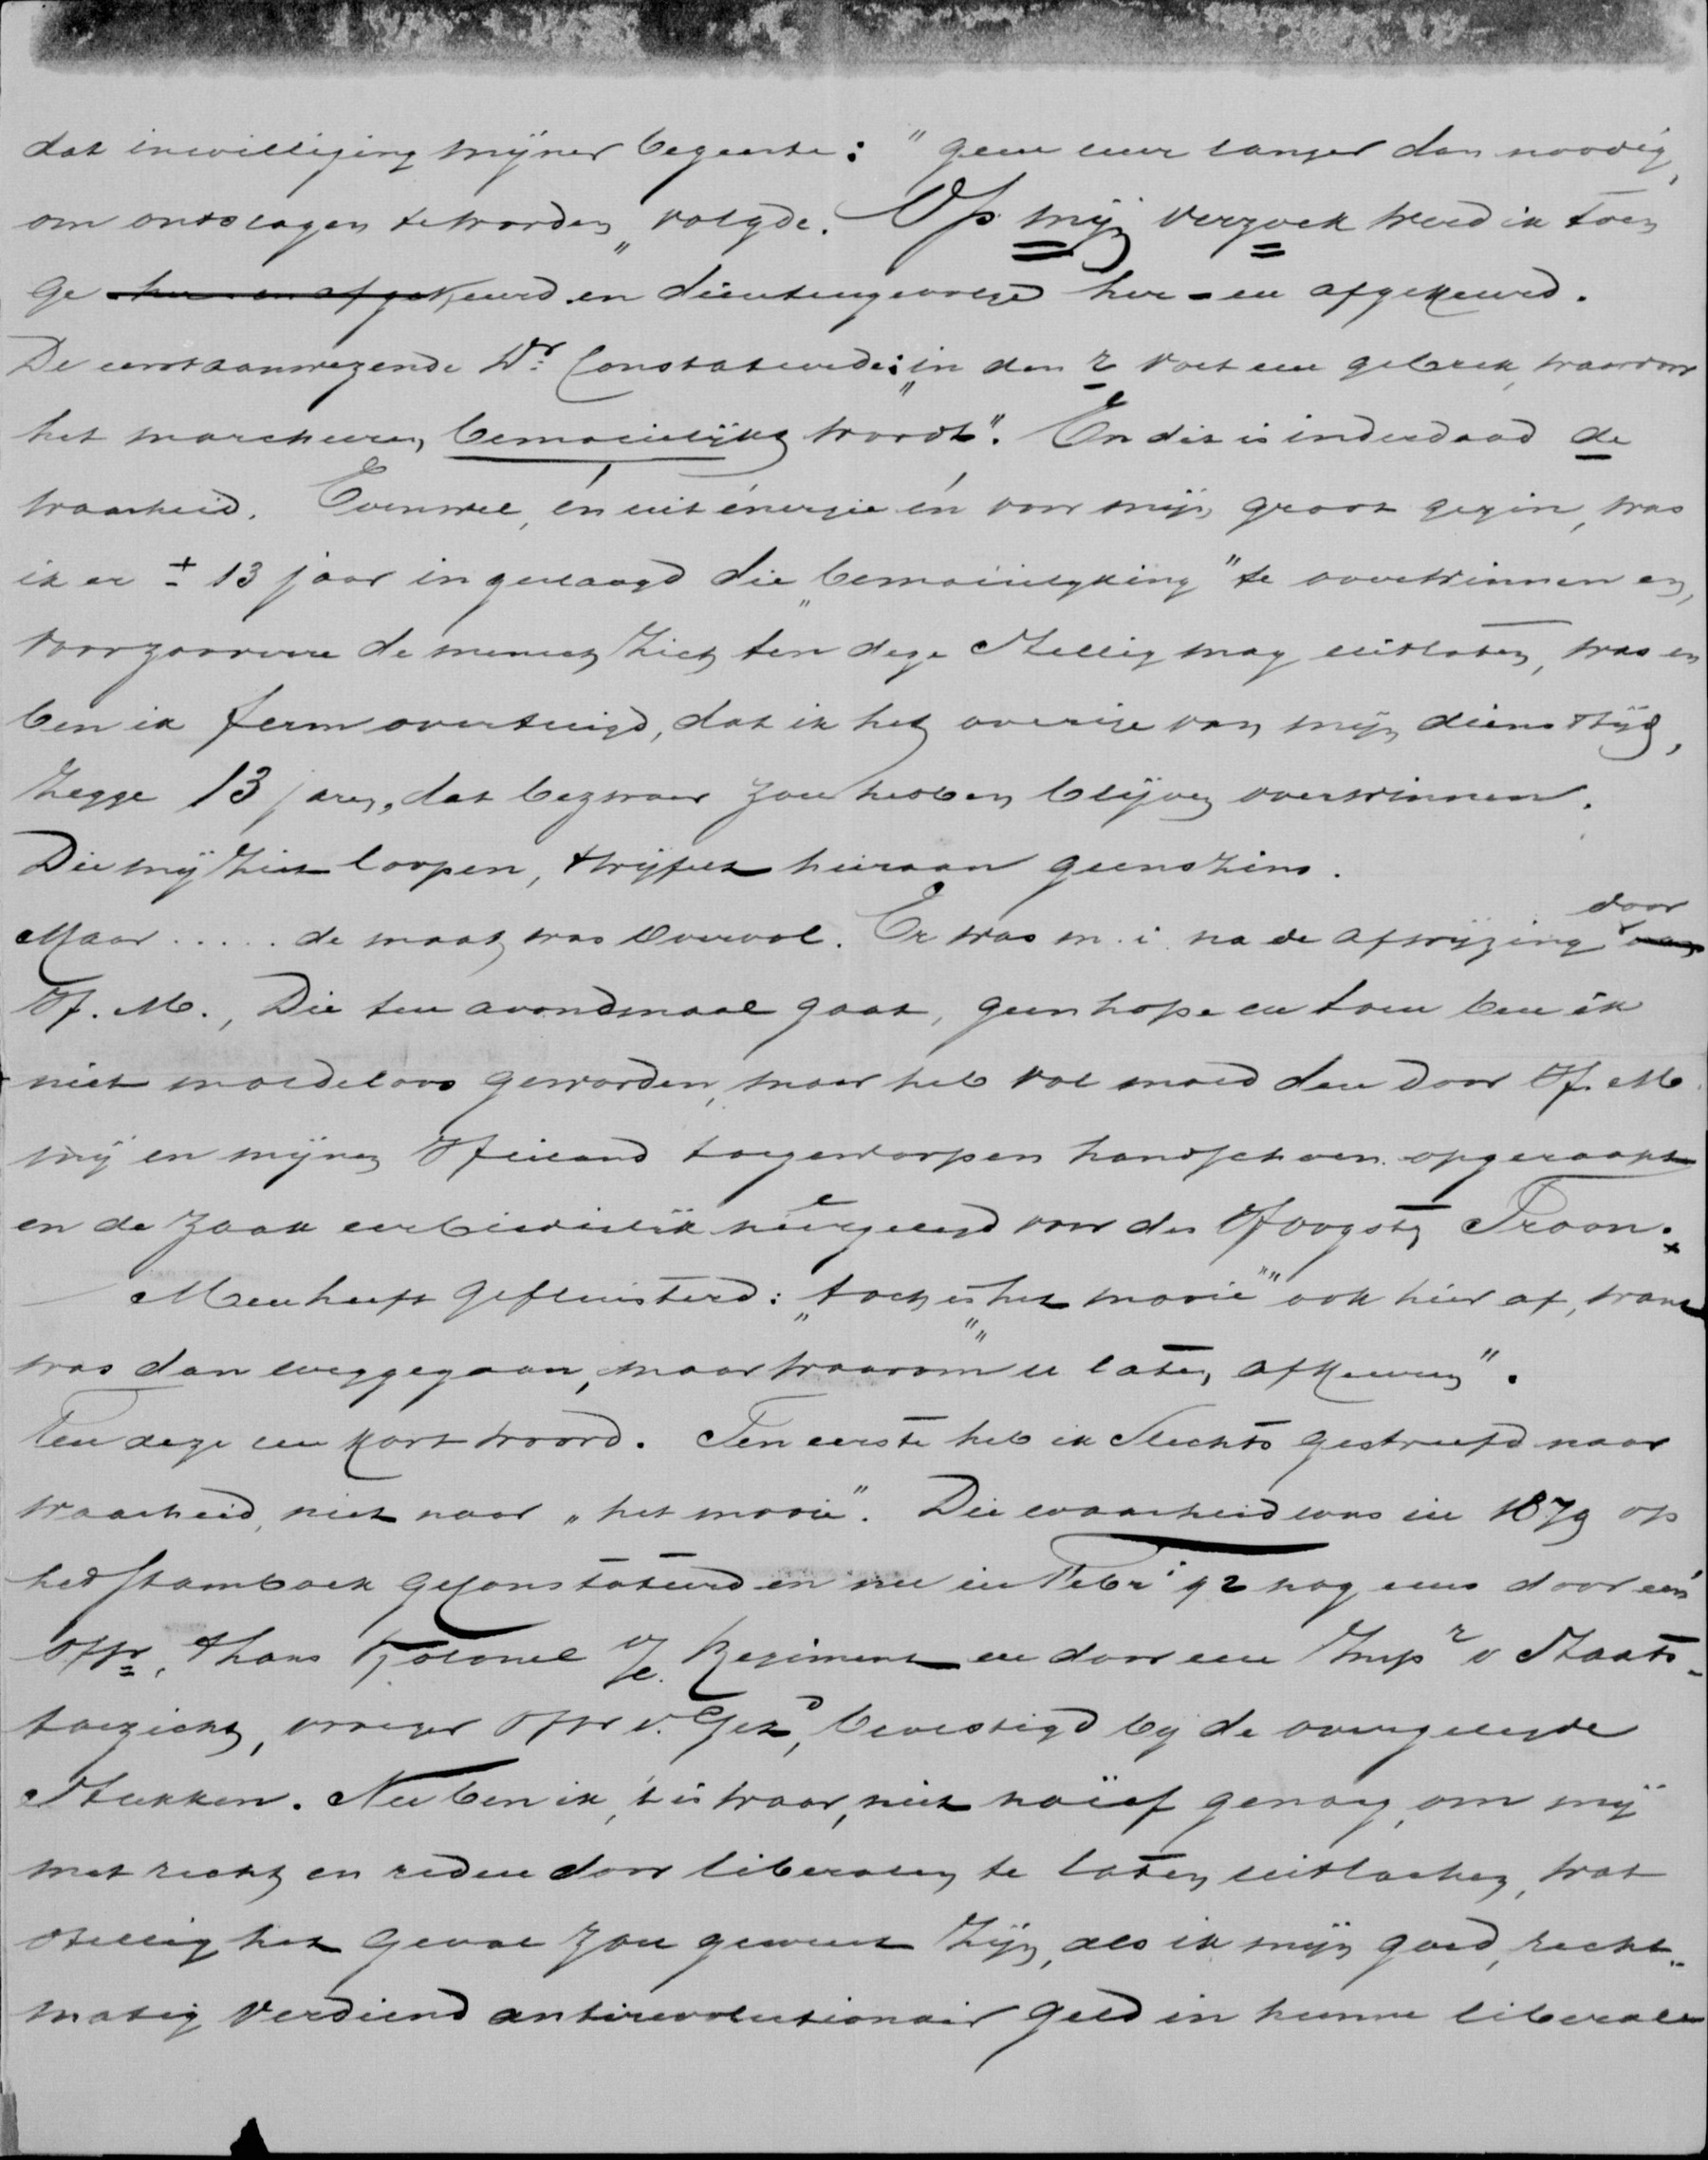 dat inwilliging mijner begeerte: "geen uur langer dan noodig,
om ontslagen te worden" volgde. Op mijn verzoek werd ik toen
ge her en afgekeurd en dientengevolge her- en afgekeurd.
De eerstaanwezende Dr. Constateerde: "in den r voet een gebrek, waardoor
het marcheeren bemoeielijkt wordt". En dit is inderdaad de
waarheid. Evenwel, én uit énergie én voor mijn groot gezin, was
ik er ± 13 jaar in geslaagd die "bemoeielyking" te overwinnen en,
voorzoover de mensch zich ten deze stellig mag uitlaten, was en
ben ik ferm overtuigd, dat ik het overige van mijn diensttijd,
zegge 13 jaren, dat bezwaar zou hebben blijven overwinnen.
Die mij ziet loopen, twijfelt hieraan geenszins.
Maar ..... de maat was overvol. Er was m. i. na de afwijzing door van
H. M., Die ten avondmaal gaat, geen hope en toen ben ik
niet moedeloos geworden, maar heb vol moed den door H. M.
mij en mijnen Heiland toegeworpen handschoen opgeraapt
en de zaak eerbiedislijk neergelegd voor den Hoogsten Troon. x
Men heeft gefluisterd: "toch is ""het mooie"" ook hier af, want
was dan weggegaan, maar waarom u laten afkeuren".
Ten deze een kort woord. Ten eerste heb ik slechts gestreefd naar
waarheid, niet naar "het mooie". Die waarheid was in 1879 op
het stamboek geconstateerd en nu in Febri 92 nog eens door één
Offr., thans Kolonel 7e. Regiment en door een Inspr v Staats-
toezicht, vroeger Offr v. Gezd, bevestigd by de overgelegde
Stukken. Nu ben ik, 't is waar, niet naïef genoeg, om mij
met recht en reden door liberalen te laten uitlachen, wat
stellig het geval zou geweest zijn, als ik mijn goed, recht-
matig verdiend antirevolutionair geld in hunne liberale